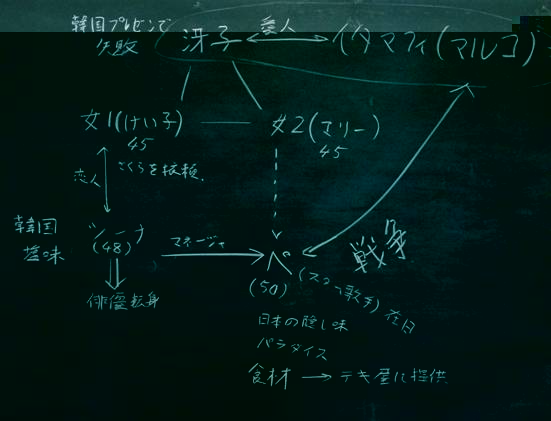 韓国プレゼンで
失敗
冴子 愛人 イタマフィ(マルコ)
女1(けい子) 女2(マリー)
45 45
恋人 さくらを依頼
韓国
ジーナ
(48) マネージャ ペ
(50)
戦争
俳優転身
在日
日本の隠し味
パラダイス
食材 → テキ屋に提供